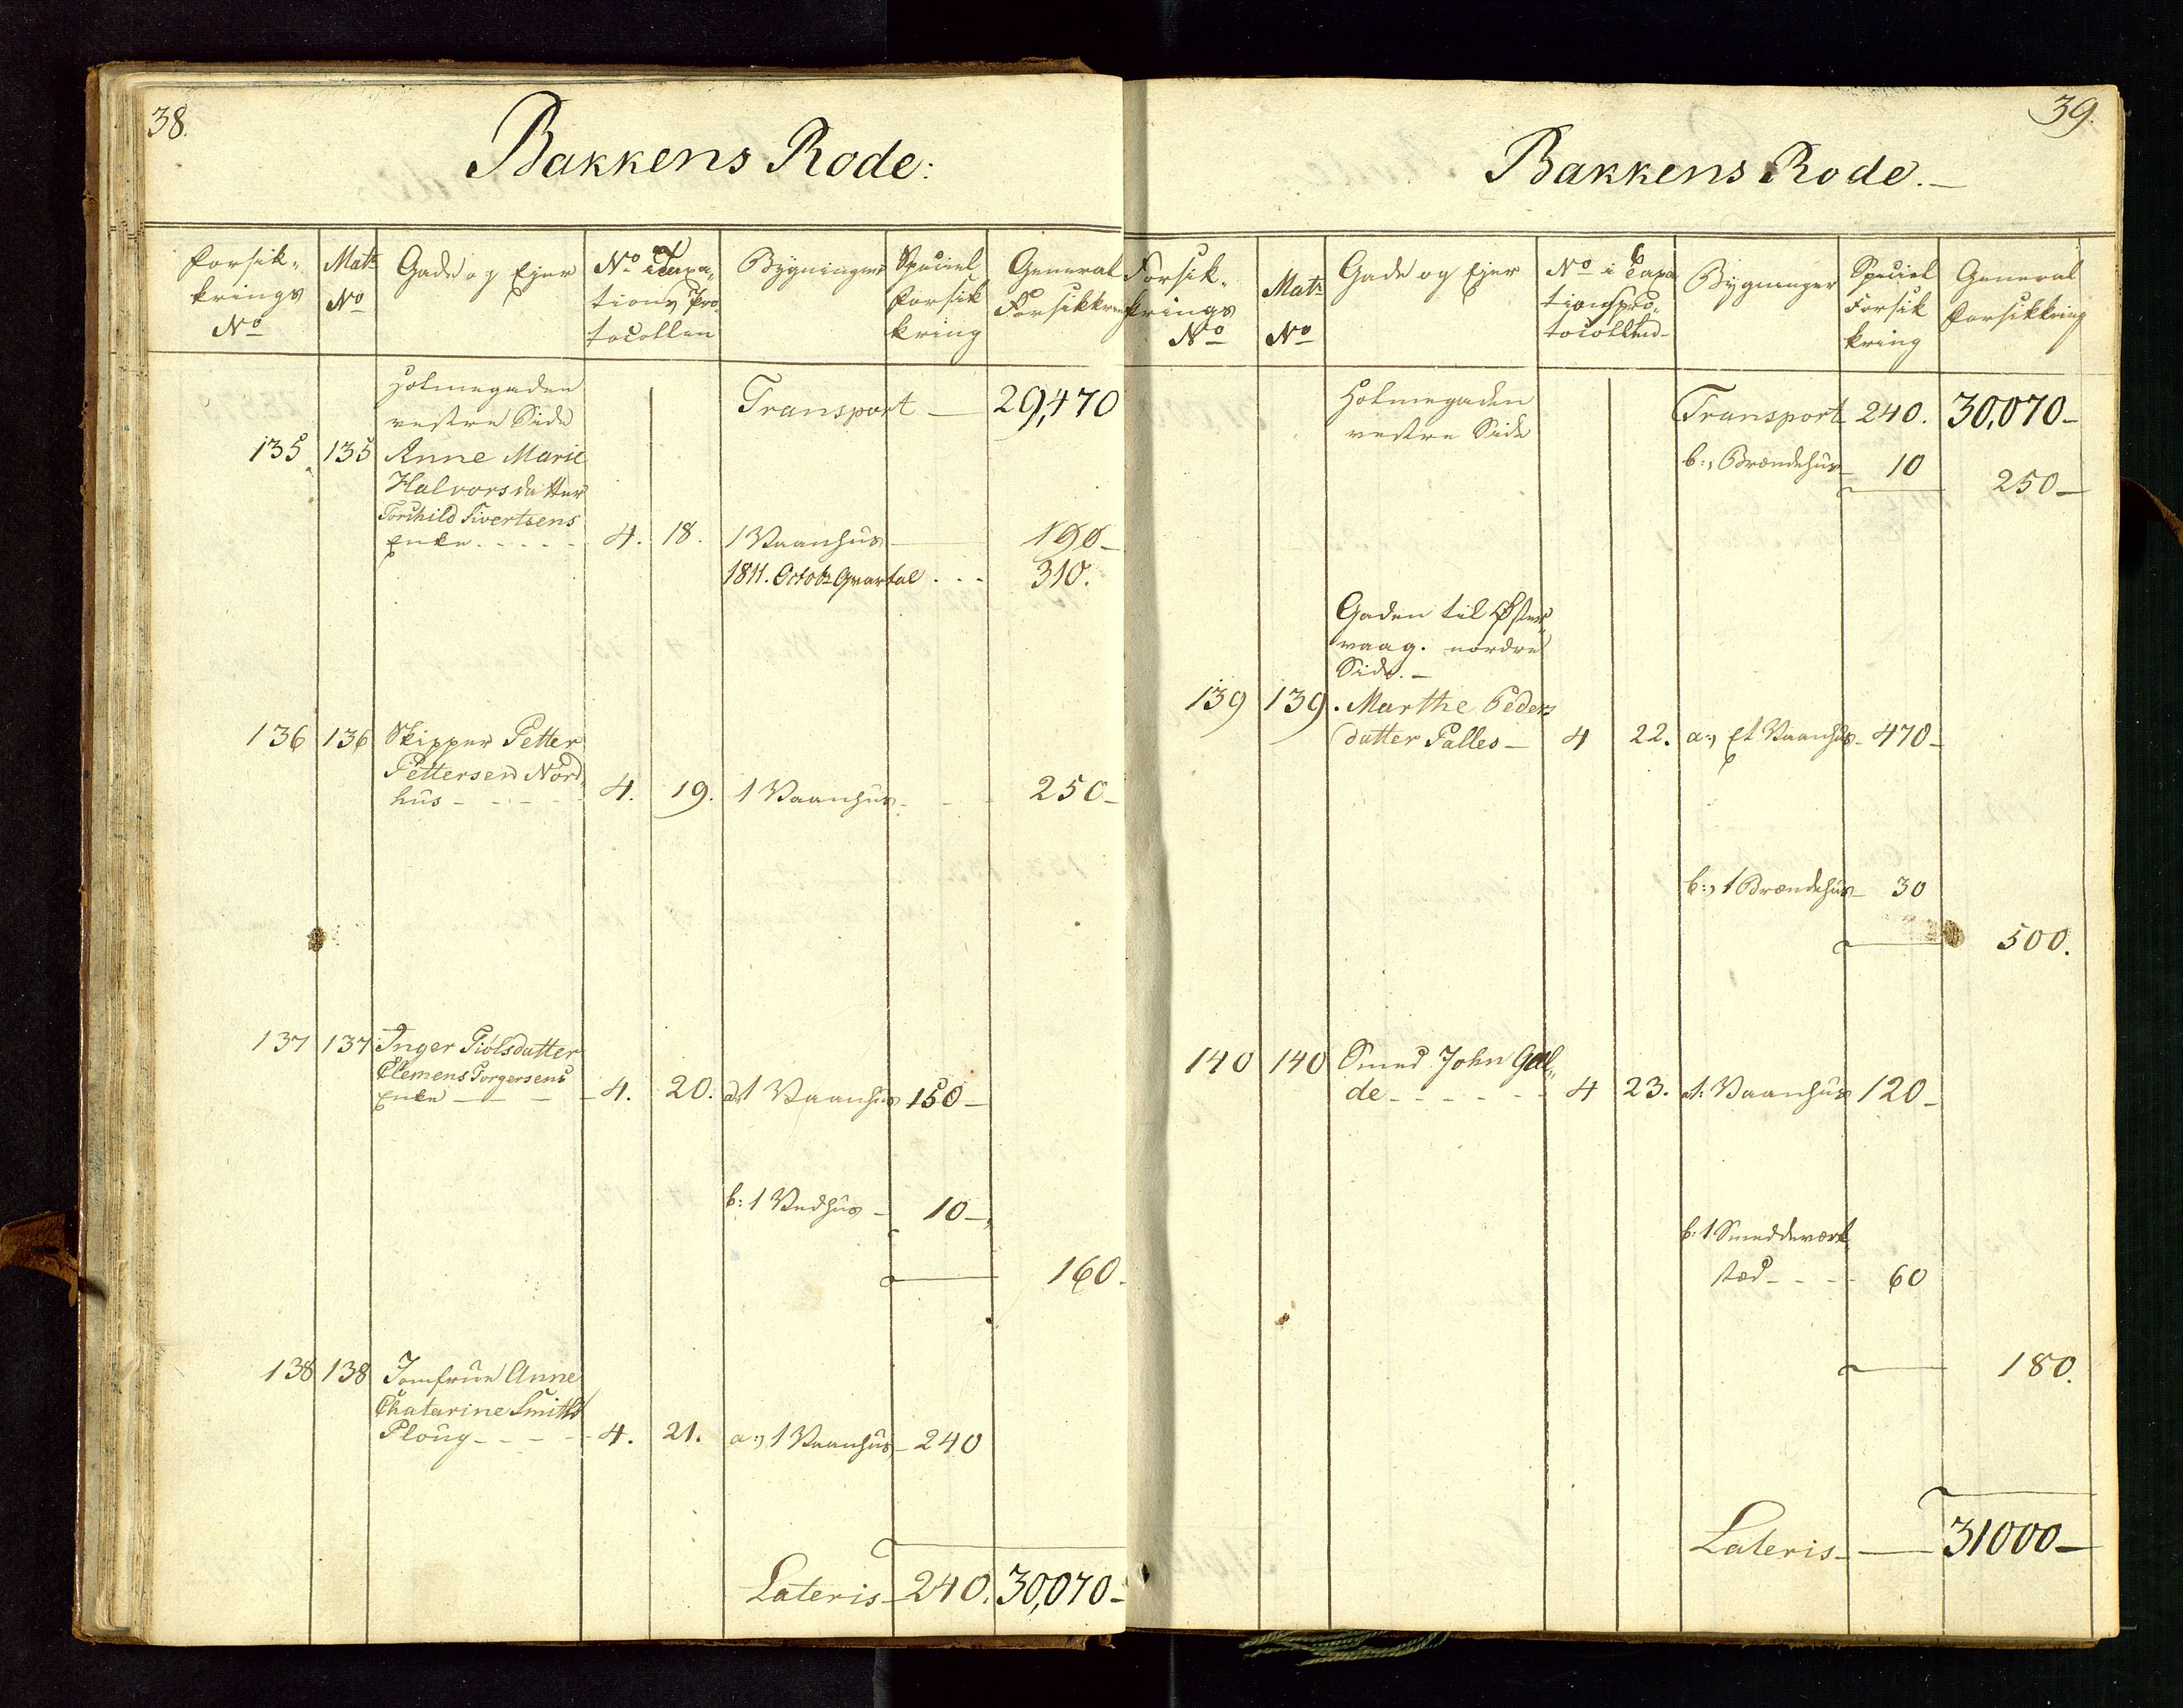 38.
Bakkens Rode:
Forsik-
krings
No
Matr
No
Gade og Ejer
No i Taxa-
tions Pro-
tocollen
Bygninger
Speciel
Forsik
kring
General
Forsikkring
Holmegaden
vestre Side
Transport — 29,470
135 135 Anne Marie
Halvorsdatter
Torchild Sivertsens
Enke - - - - - 4. 18. 1 Vaanhus — 190-
1811. Octobr Qvartal . - - 310.
136 136 Skipper Petter
Pettersen Nord-
hus - - - - - 4. 19. 1 Vaanhus - - - 250-
137 137 Inger Tiølsdatter
Clemens Torgersens
Enke — — - 4. 20. a:1 Vaanhus 150-
b: 1 Vedhus - 10-
160.
138 138 Jomfrue Anne
Chatarine Smiths
Ploug - - - - - 4. 21. a:, 1 Vaanhus - 240
Lateris - 240. 30,070-
39.
Bakkens Rode.-
Forsik-
krings
No
Matr
No
Gade og Ejer
No i Taxa
tionspro-
tocollen-
Bygninger
Speciel
Forsik
kring
General
Forsikkring
Holmegaden
vestre Side
Transport 240. 30,070-
b:, Brændehus 10
250-
Gaden til Øster-
vaag. nordre
Side.-
139 139. Marthe Peders
datter Palles - 4 22. a:, Et Vaanhus - 470-
b:, 1 Brændehus - 30
500.
140 140 Smed John Gal-
de - - - - - - 4 23. a1: Vaanhus 120-
b: 1 Smeddeværk-
stæd - - - - 60
180.
Lateris - — 31000-